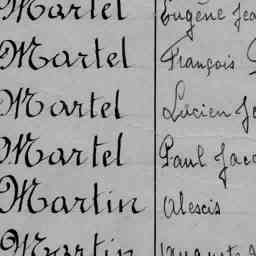 Martel Eugène
Martel François
Martel Lucien
Martel Paul
Martin Alescis
Martin